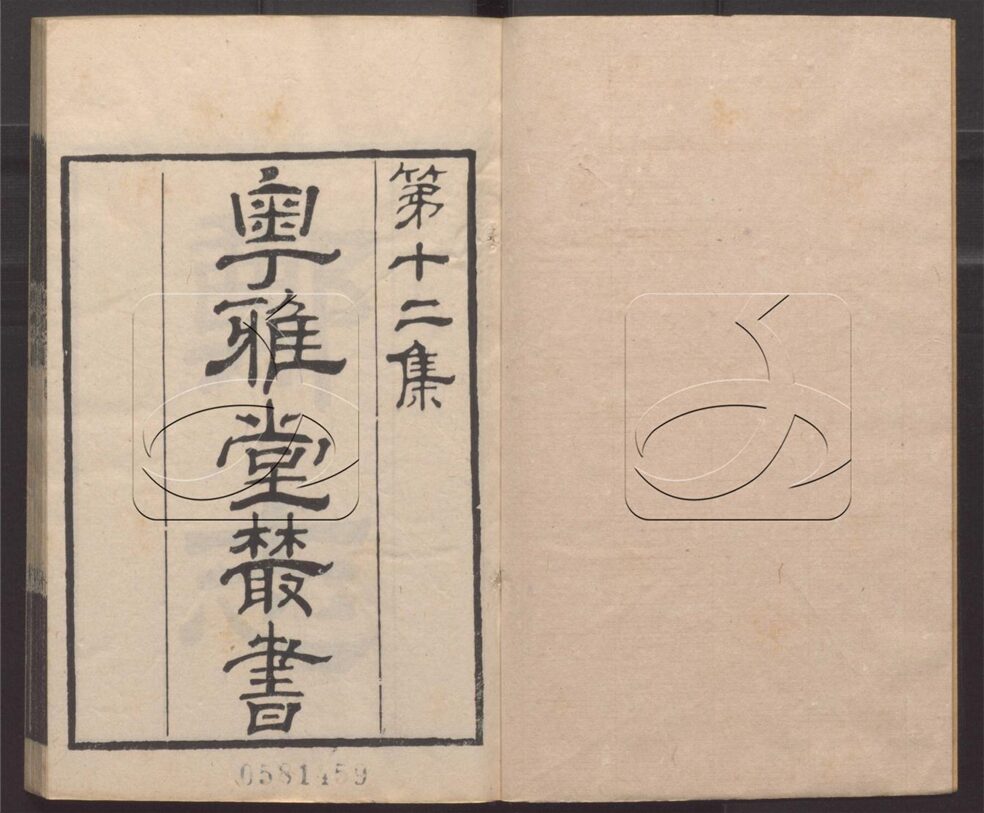 第十二集
粵雅堂叢書
0581459